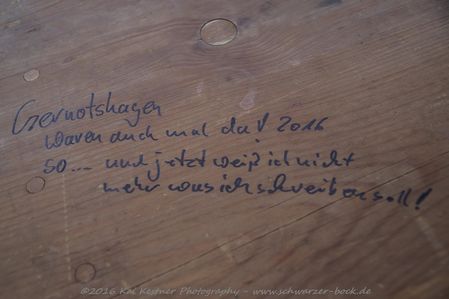 Gernotshagen
waren auch mal da! 2016
so.... und jetzt weiß ich nicht
mehr was ich schreiben soll!
©2016 Kai Kestner Photography - www.schwarzer-bock.de